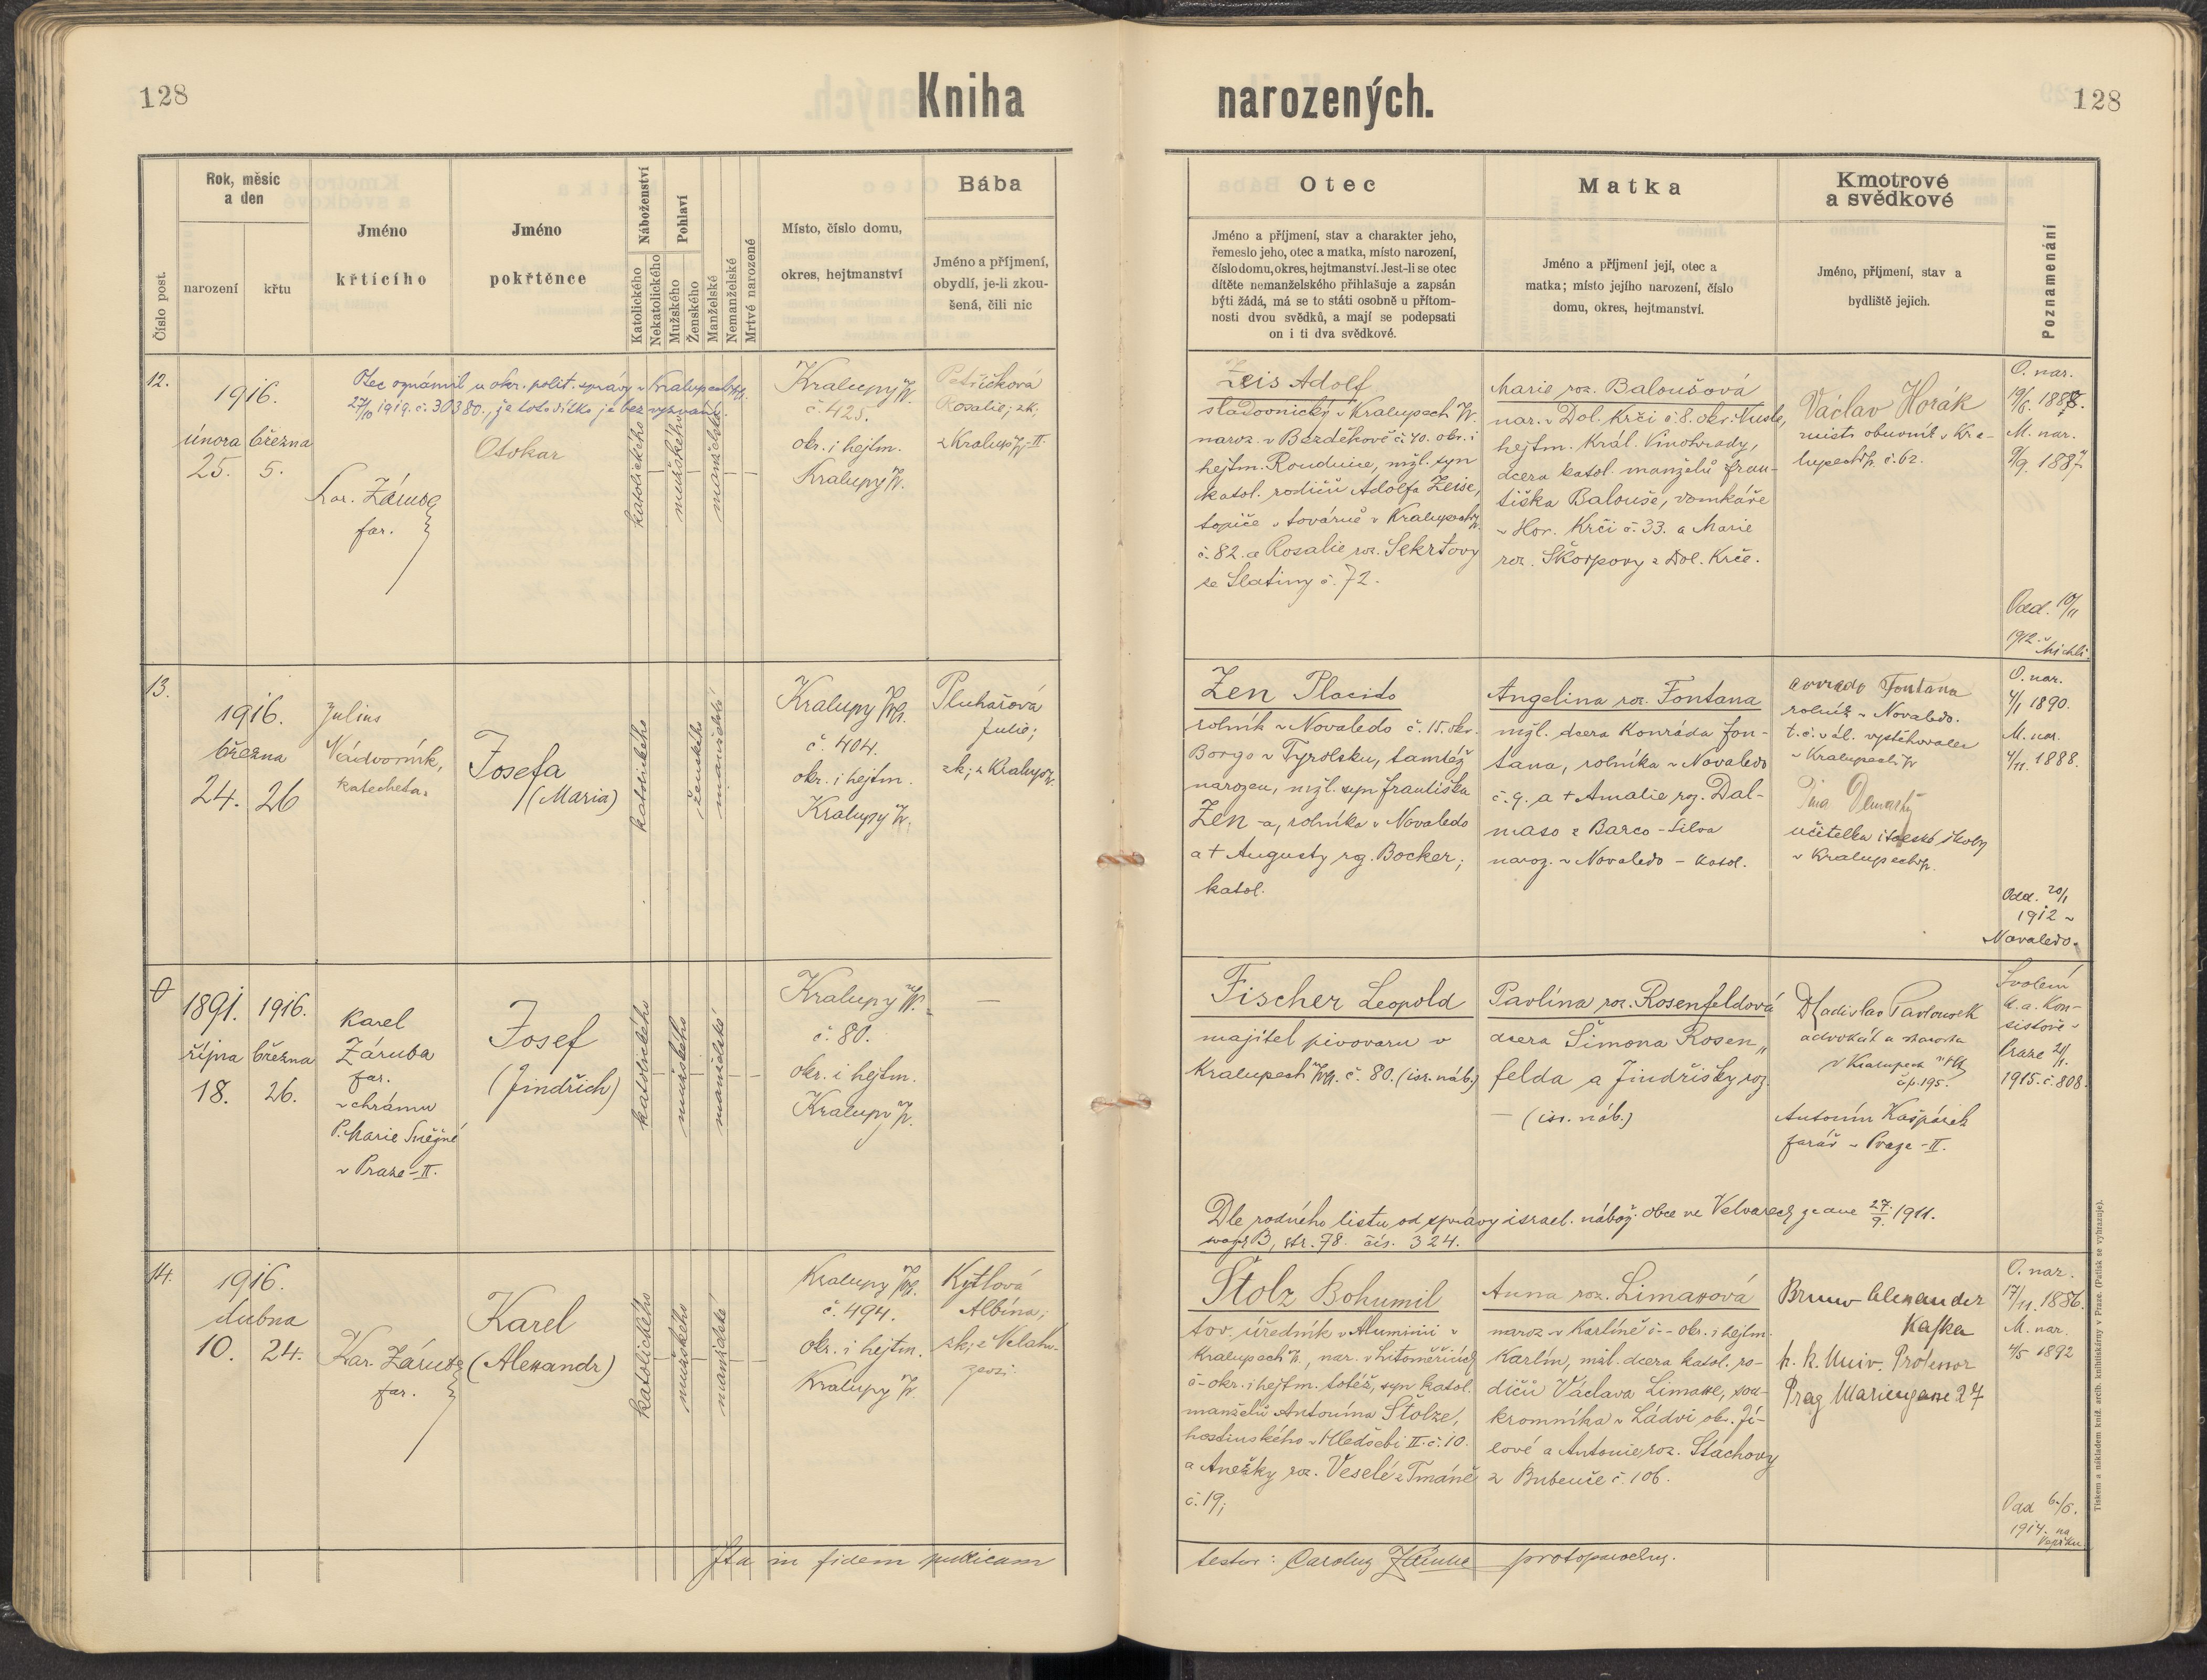 128
Kniha
narozených.
128
Číslo post.
Rok, měsíc
a den
narození
křtu
Jméno
křtícího
Jméno
pokřtěnce
Náboženství
Katolického
Nekatolického
Pohlaví
Mužského
Ženského
Manželské
Nemanželské
Mrtvé narozené
Místo, číslo domu,
okres, hejtmanství
Bába
Jméno a příjmení,
obydlí, je-li zkou-
šená, čili nic
Otec
Jméno a příjmení, stav a charakter jeho,
řemeslo jeho, otec a matka, místo narození,
číslo domu, okres, hejtmanství. Jest-li se otec
dítěte nemanželského přihlašuje a zapsán
býti žádá, má se to státi osobně u přítom-
nosti dvou svědků, a mají se podepsati
on i ti dva svědkové.
Matka
Jméno a příjmení její, otec a
matka; místo jejího narození, číslo
domu, okres, hejtmanství.
Kmotrové
a svědkové
Jméno, příjmení, stav a
bydliště jejich.
Poznamenání
12.
1916.
února března
25. 5.
Otec oznámil u okr. polit. správy v Kralupech
27/10 1919. č. 30380., že toto dítko je bez vyznání.
Kar. Záruba
far.
Otokar
katolického
mužského
manželské
Kralupy
č. 425.
okr. i hejtm.
Kralupy
Petříčková
Rosalie; zk.
z Kralup II.
Zeis Adolf
sladovnický v Kralupech
naroz. v Bezděkově č. 40. okr. i
hejtm. Roudnice, mžl. syn
katol. rodičů Adolfa Zeise,
topiče v továrně v Kralupech
č. 82. a Rosalie roz. Sekrtovy
ze Slatiny č. 72.
Marie roz. Baloušová
nar. v Dol. Krči č. 8. okr. Nusle,
hejtm. Král. Vinohrady,
dcera katol. manželů Fran-
tiška Balouše, domkáře
v Hor. Krči č. 33. a Marie
roz. Škorpovy z Dol. Krče.
Václav Horák
mistr obuvník v Kra-
lupech č. 62.
O. nar.
19/6. 1888.
M. nar.
9/9. 1887
Odd. 10/11
1912 v
Michli
13.
1916.
března
24. 26
Julius
Nádvorník,
katecheta.
Josefa
(Maria)
katolického
ženského
manželské
Kralupy
č. 404.
okr. i hejtm.
Kralupy
Pluhařová
Julie;
zk; z Kralup
Zen Placido
rolník v Novaledo č. 15. okr.
Borgo v Tyrolsku, tamtéž
narozen, mžl. syn Františka
Zen-a, rolníka v Novaledo
a † Augusty roz. Bocker;
katol.
Angelina roz. Fontana
mžl. dcera Konráda Fon-
tana, rolníka v Novaledo
č. 9. a † Amalie roz. Dal-
maso z Barco-Silva
naroz. v Novaledo - katol.
Corrado Fontana
rolník v Novaledo.
t. č. vál. vystěhovalec
v Kralupech
Pina
učitelka italské školy
v Kralupech
O. nar.
4/1 1890.
M. nar.
4/11. 1888.
Odd. 20/1
1912 v
Novaledo.
0
1891. 1916.
října března
18. 26.
Karel
Záruba
far.
v chrámu
P. Marie Sněžné
v Praze-II.
Josef
(Jindřich)
katolického
mužského
manželské
Kralupy
č. 80.
okr. i hejtm.
Kralupy
—
Fischer Leopold
majitel pivovaru v
Kralupech č. 80. (isr. náb.)
Pavlína roz. Rosenfeldová
dcera Šimona Rosen„
felda a Jindřišky roz.
— (isr. náb.)
Dle rodného listu od správy israel. nábož. obce ve Velvarech ze dne 27/9. 1911.
B, str. 78. čís. 324.
Ladislav Pavlousek
advokát a starosta
v Kralupech
čp. 195.
Antonín Kašpárek
farář v Praze-II.
Svolení
k. a. kon-
sistoře v
Praze
1915. č. 808.
14.
1916.
dubna
10. 24.
Kar. Záruba
far.
Karel
(Alexandr)
katolického
mužského
manželské
Kralupy
č. 494.
okr. i hejtm.
Kralupy
Kytlová
Albína;
zk; z
Stolz Bohumil
tov. úředník v Aluminii v
Kralupech, nar. v Litoměřicích
č- okr. i hejtm. totéž, syn katol.
manželů Antonína Štolze,
hostinského v Hledsebi II. č. 10.
a Anežky roz. Veselé z Tmáně
č. 19;
Anna roz. Limaxová
naroz. v Karlíně č-- okr. i hejtm.
Karlín, mžl. dcera katol. ro-
dičů Václava Limaxe, sou-
kromníka v Ládví okr. Jí-
lové a Antonie roz. Stachovy
z Bubenče č. 106.
Bruno Alexander
Kafka
k. k. Univ. Professor
Prag Mariengasse 27
O. nar.
17/11. 1886.
M. nar.
4/5 1892
Odd 6/6.
1914. na
Vepřku
Ita in fidem publicam
testor: Carolus Záruba protoparochus.
Tiskem a nákladem kníž. arcib. knihtiskárny v Praze. (Patisk se vyhrazuje).